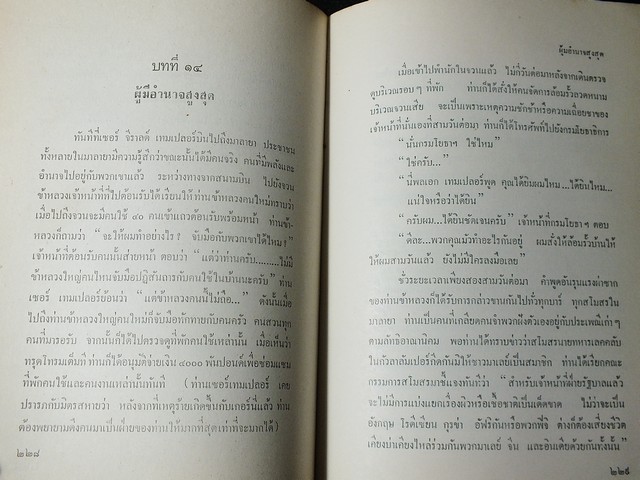 บทที่ ๑๔
ผู้มีอำนาจสูงสุด
ทันทีที่เซอร์ จีราลด์ เทมเปลอร์บินไปถึงมาลายา ประชาชน
ทั้งหลายในมาลายามีความรู้สึกว่าขณะนั้นได้มีคนจริง คนที่มีพลังและ
อำนาจไปอยู่กับพวกเขาแล้ว ระหว่างทางจากสนามบิน ไปยังจวน
ข้าหลวงเจ้าหน้าที่ที่ไปต้อนรับได้เรียนให้ ท่านข้าหลวงคนใหม่ทราบว่า
เมื่อไปถึงจวนจะมีคนใช้ ๔๐ คนเข้าแถวต้อนรับพร้อมหน้า ท่านข้า-
หลวงก็ถามว่า “จะให้ผมทำอย่างไร? จับมือกับพวกเขาได้ไหม?”
เจ้าหน้าที่ต้อนรับคนนั้นส่ายหน้า ตอบว่า “แต่ว่าท่านครับ........ไม่มี
ข้าหลวงใหญ่คนไหนจับมือปฏิสันถารกับคนใช้ในบ้านนะครับ” ท่าน
เซอร์ เทมเปลอร์ย้อนว่า “แต่ข้าหลวงคนนี้ไม่ถือ...” ดังนั้นเมื่อ
ไปถึงท่านข้าหลวงใหญ่คนใหม่ก็จับมือทักทายกับคนครัว คนสวนทุก
คนที่มารอรับ จากนั้นก็ได้ไปตรวจดูที่พักคนใช้เหล่านั้น เมื่อเห็นว่า
ทรุดโทรมเต็มที ท่านก็ได้อนุมัติจ่ายเงิน ๔๐๐๐ พันปอนด์เพื่อซ่อมแซม
ที่พักคนใช้และคนงานเหล่านั้นทันที (ท่านเซอร์เทมเปลอร์ เคย
ปรารภกับมิตรสหายว่า หลังจากที่เหตุร้ายเกิดขึ้นกับเกอร์นี่แล้ว ท่าน
ต้องพยายามดึงคนมาเป็นฝ่ายของท่านให้มากที่สุดเท่าที่จะมากได้)
๒๒๘
ผู้มีอำนาจสูงสุด
เมื่อเข้าไปพำนักในจวนแล้ว ไม่กี่วันต่อมาหลังจากเดินตรวจ
ดูบริเวณรอบๆ ที่พัก ท่านก็ได้สั่งให้คนจัดการล้อมรั้วลวดหนาม
บริเวณจวนเสีย จะเป็นเพราะเหตุความชักช้าหรือความเฉื่อยชาของ
เจ้าหน้าที่นั่นเองที่สามวันต่อมา ท่านก็ได้โทรศัพท์ไปยังกรมโยธาธิการ
“นั่นกรมโยธาฯ ใช่ไหม”
“ใช่ครับ...”
“นี่พลเอก เทมเปลอร์พูด คุณได้ยินผมไหม...ได้ยินไหม...
แน่ใจหรือว่าได้ยิน”
“ครับผม...ได้ยินชัดเจนครับ” เจ้าหน้าที่กรมโยธาฯ ตอบ
“ดีละ...พวกคุณมัวทำอะไรกันอยู่ ผมสั่งให้ล้อมรั้วบ้านให้
ให้ผมสามวันแล้ว ยังไม่มีใครลงมือเลย”
ชั่วระยะเวลาเพียงสองสามวันต่อมา คำพูดอันรุนแรงกำชาก
ของท่านข้าหลวงก็ได้รับการกล่าวขานกันไปทั่วทุกบาร์ ทุกสโมสรใน
มาลายา ท่านเป็นคนที่เกลียดคนจำพวกฝังตัวเองอยู่กับประเพณีเก่าๆ
ตามลัทธิอาณานิคม พอท่านได้ทราบข่าวว่าสโมสรนายทหารเลคคลับ
ในกัวลาลัมเปอร์กีดกันมิให้ชาวมาเลย์เป็นสมาชิก ท่านได้เรียกคณะ
กรรมการสโมสรมาชี้แจงทันทีว่า “สำหรับเจ้าหน้าที่ฝ่ายรัฐบาลแล้ว
จะไม่มีการแบ่งแยกเรื่องผิวหรือเชื้อชาติเป็นเด็ดขาด ไม่ว่าจะเป็น
อังกฤษ โรดีเซียน กุรข่า อัฟริกันหรือพวกฟิจิ ต่างก็ต้องเสี่ยงชีวิต
เคียงบ่าเคียงไหล่ร่วมกันพวกมาเลย์ จีน และอินเดียด้วยกันทั้งนั้น”
๒๒๙